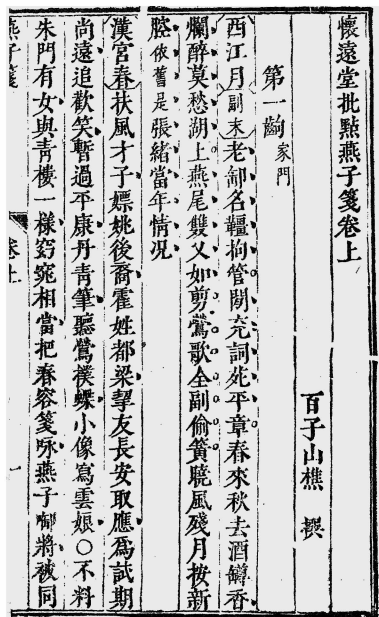 懷遠堂批點燕子箋卷上
百子山樵 撰
第一齣 家門
西江月 副末 老卸名韁拘管閒充詞苑平章春來秋去酒罇香
爛醉莫愁湖上燕尾雙叉如剪鶯歌全副偷簧曉風殘月按新
腔依舊是張緒當年情况
漢宮春 扶風才子嫖姚後裔霍姓都梁挈友長安取應爲試期
尚遠追歡笑暫過平康丹青筆聽鶯撲蝶小像寫雲娘○不料
朱門有女與青樓一樣窈窕相當把春容箋咏燕子啣將被同
燕子箋
卷上
一